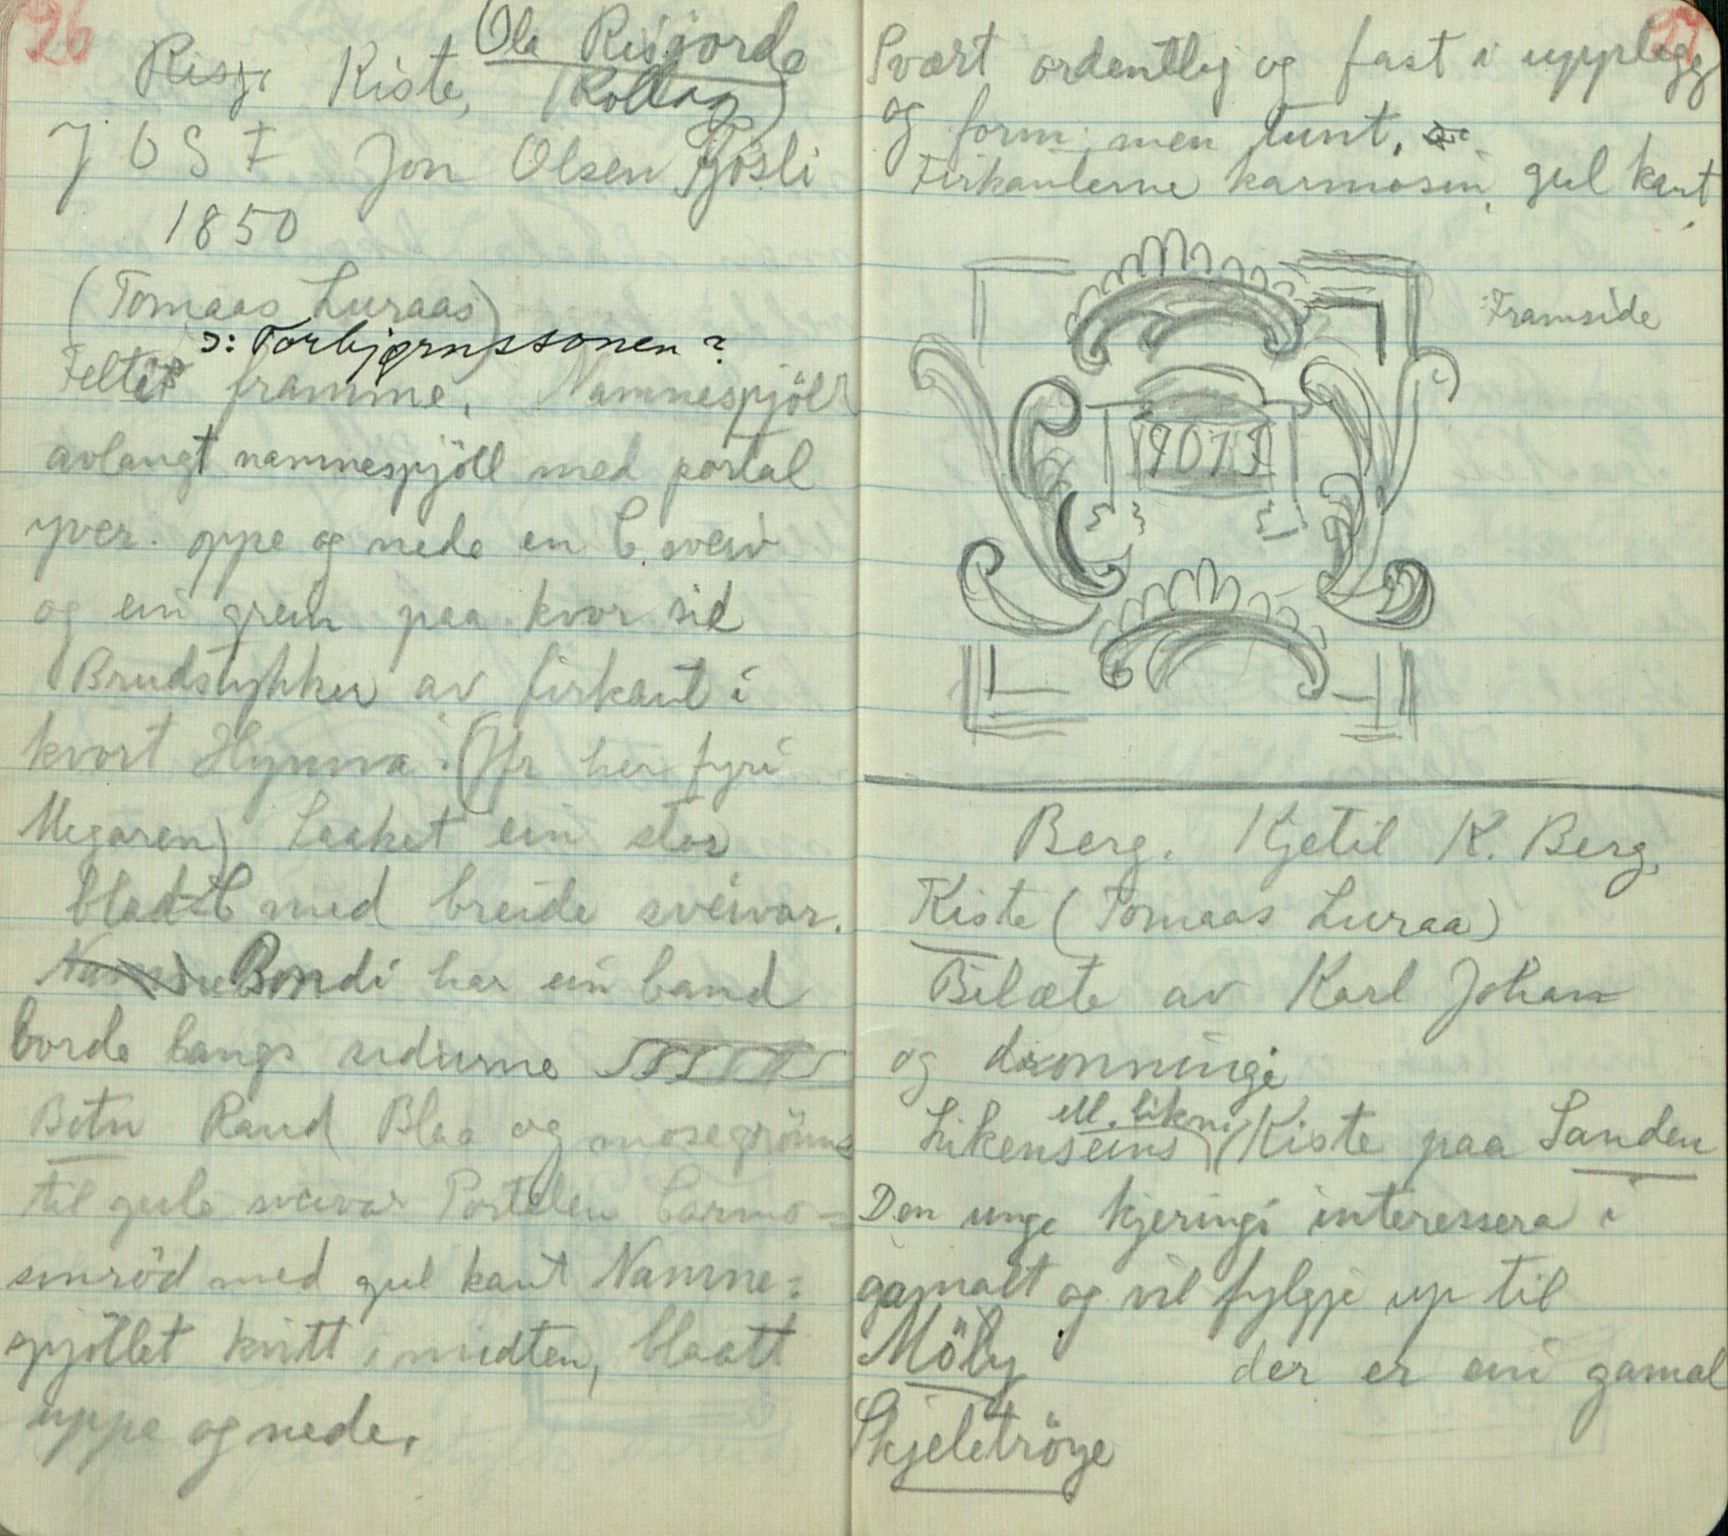 26
Ola Risjorde
Risj. Kiste, (Rollag)
J O S F Jon Olsen Fjösli
1850
(Tomaas Luraas)
ɔ: Torbjørnssonen?
Feltet framme. Namnespjöld
avlangt namnespjöll med portal
yver. oppe og nede en C sveiv
og ein grein paa kvor sid
Brudstykker av firkant i
kvort Hyrna. (Jfr her fyri
Megaren) Laaket ein stor
blad-C med breide sveivar.
Bondi har ein band
borde langs sidurne
Botn Raud Blaa og mosegröne
til gule sveivar Portalen karmo=
sinröd med gul kant Namne=
spjöllet kvitt i midten, blaatt
uppe og nede.
27
Svært ordentleg og fast i upplegg
og form men tunt.
Firkanterne karmosin, gul kant.
Framside
Berg. Kjetil K. Berg.
Kiste (Tomaas Luraa)
Bilæte av Karl Johan
og dronningi
ell. likn
Likenseins (Kiste paa Sanden
Den unge kjeringi interessera i
gamalt og vil fylgje up til
Möby der er ein gamal
Skjeletröye